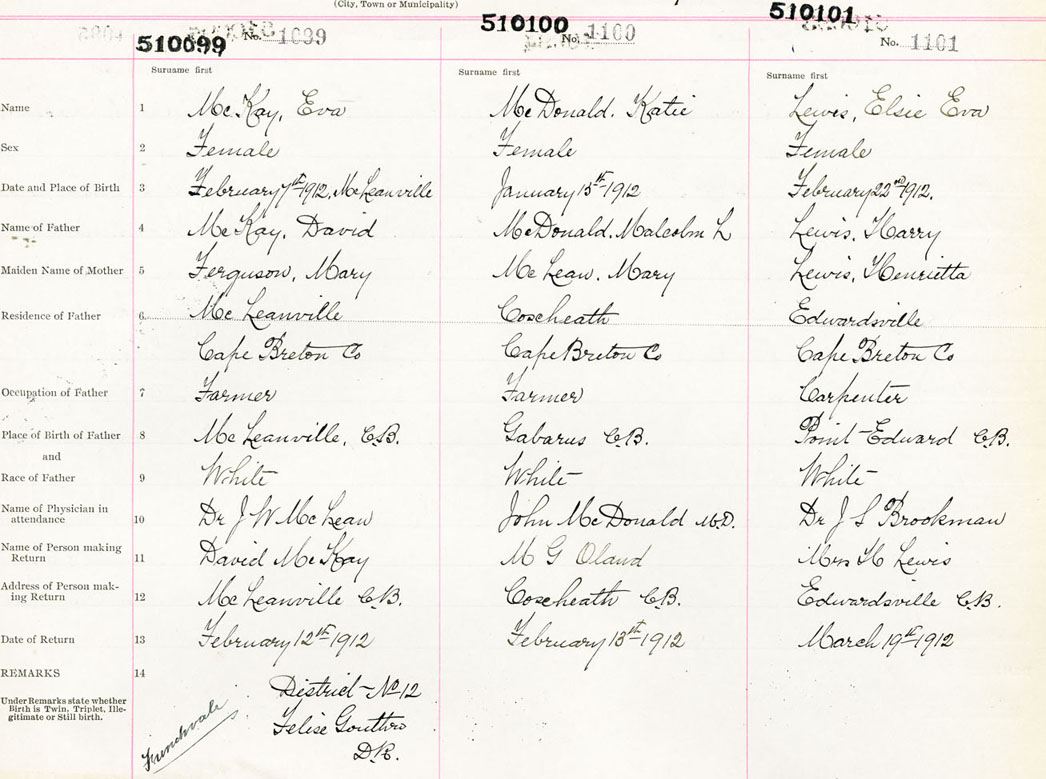 (City, Town or Municipality)
510099 No. 1099
510100 No. 1100
510101 No. 1101
Surname first Surname first Surname first
Name 1 McKay, Eva McDonald. Katie Lewis, Elsie Eva
Sex 2 Female Female Female
Date and Place of Birth 3 February 7th 1912, McLeanville January 15th 1912 February 22nd 1912.
Name of Father 4 McKay, David McDonald. Malcolm L Lewis. Harry
Maiden Name of Mother 5 Ferguson, Mary McLean. Mary Lewis, Henrietta
Residence of Father 6 McLeanville Coxheath Edwardsville
Cape Breton Co Cape Breton Co Cape Breton Co
Occupation of Father 7 Farmer Farmer Carpenter
Place of Birth of Father 8 McLeanville, C.B. Gabarus C.B. Point-Edward C.B.
and
Race of Father 9 White White White
Name of Physician in
attendance 10 Dr J W McLean John McDonald M.D. Dr J S Brookman
Name of Person making
Return 11 David McKay M G Oland Mrs H Lewis
Address of Person mak-
ing Return 12 McLeanville C.B. Coxheath C.B. Edwardsville C.B.
Date of Return 13 February 12th 1912 February 13th 1912 March 19th 1912
REMARKS 14
Under Remarks state whether
Birth is Twin, Triplet, Ille-
gitimate or Still birth.
District - No 12
Felise Gouthro
D.R.
Frenchvale